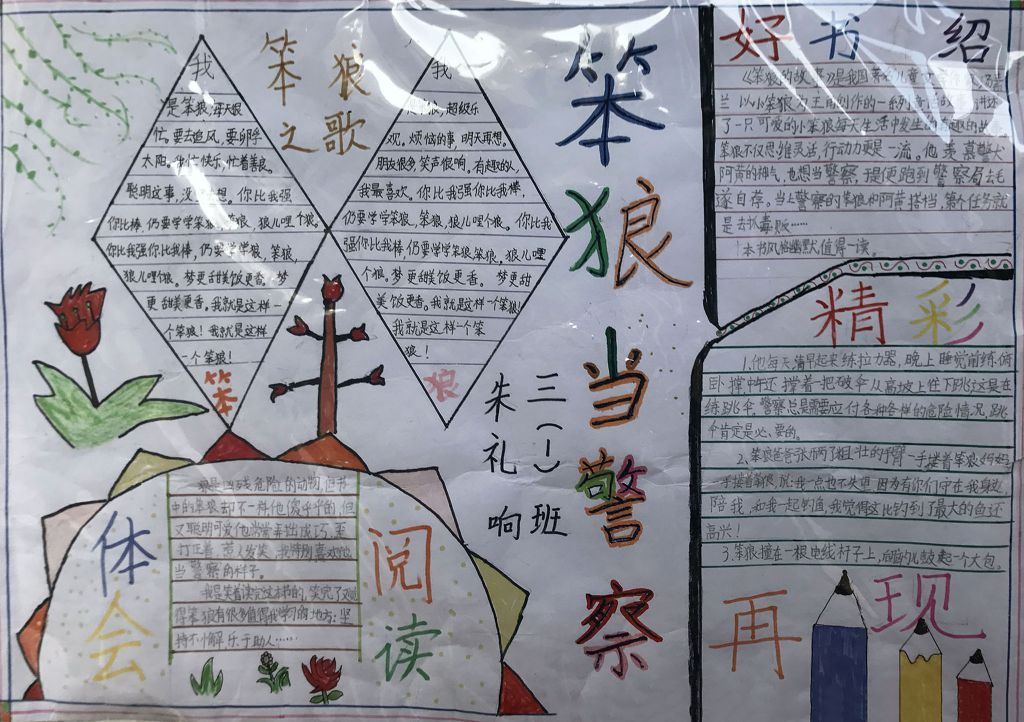 笨狼之歌
我
是笨狼,每天很
忙。要去追风,要孵
太阳。我忙快乐,忙着善良。
聪明这事,没想。你比我强
你比我棒,仍要学学笨狼,笨狼,狼儿哩个狼。
你比我强你比我棒,仍要学学狼,笨狼,
狼儿哩个狼。梦更甜美饭更香。梦
更甜美更香。我就是这样一
个笨狼!我就是这样
一个笨狼!
笨
我
是笨狼,超级乐
观。烦恼的事,明天再想。
朋友很多,笑声很响。有趣的人,
我最喜欢。你比我强你比我棒,
仍要学学笨狼,笨狼,狼儿哩个狼。你比我
强你比我棒,仍要学学笨狼笨狼,狼儿哩
个狼。梦更甜美饭更香。梦更甜
美饭更香。我就是这样一个笨狼!
我就是这样一个笨
狼!
狼
笨狼当警察
三(一)班
朱礼响
好书绍
《笨狼的故事》是我国著名儿童
兰以小笨狼为主角创作的一系列
了一只可爱的小笨狼每天生活中发生的有趣的故
笨狼不仅思维灵活,行动力更是一流。他羡慕警犬
阿黄的神气,也想当警察,于是便跑到警察局去毛
遂自荐。当上警察的笨狼和阿黄搭档,第一个任务就
是去扒毒贩……
本书风格幽默,值得一读。
精彩
1.他每天清早起来练拉力器,晚上睡觉前练俯
卧撑中午还撑着一把破伞从高坡上往下跳这是在
练跳伞。警察总是需要应付各种各样的危险情况,跳
伞肯定是必要的。
2、笨狼爸爸张开两只粗壮的手臂一手搂着笨狼妈妈
一手搂着笨狼,说:我一点也不失望,因为有你们守在我身边,
陪我,和我一起钓鱼,我觉得这比钓到了最大的鱼还
高兴!
3.笨狼撞在一根电线杆子上,脑门儿鼓起一个大包。
再现
体会
狼是凶残危险的动物,但书
中的笨狼却不一样他傻乎乎的,但
又聪明可爱他常常弄出成巧,歪
打正着,惹人发笑。我特别喜欢他
当警察的样子。
我是笑着读完这本书的,笑完了又觉
得笨狼有很多值得我学习的地方:坚
持不懈乐于助人……
阅读